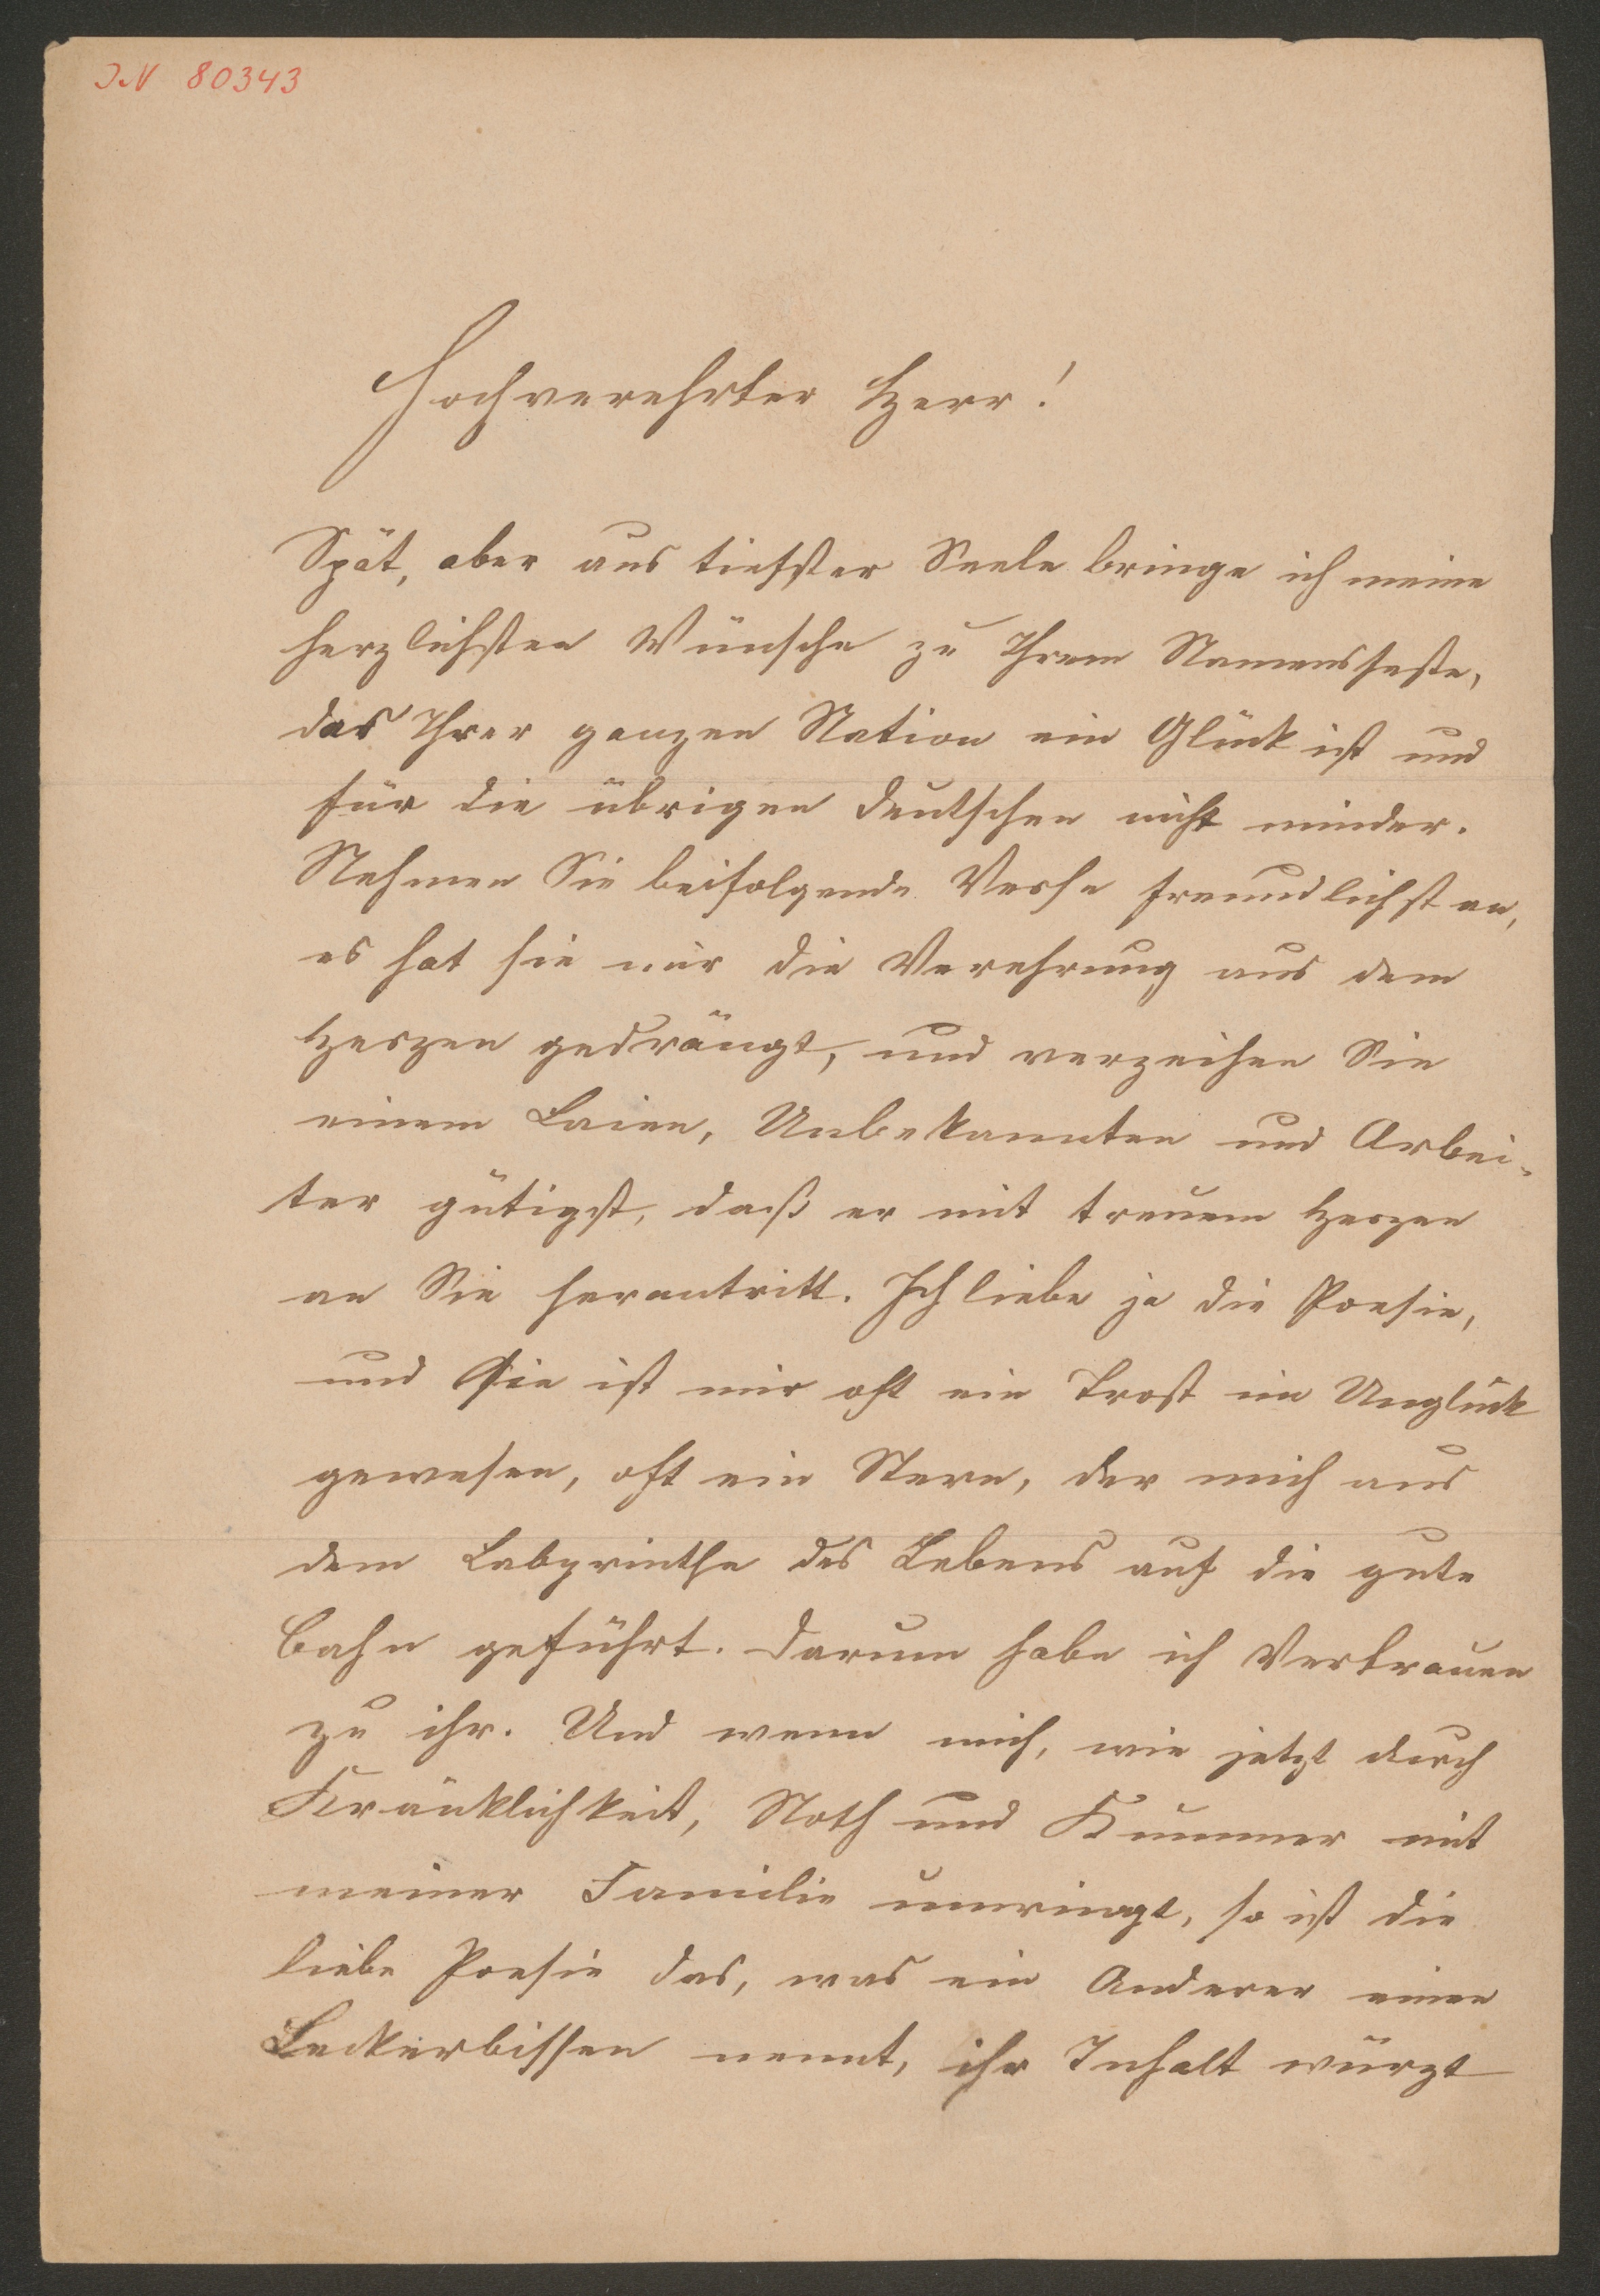 IN 80343
Hochverehrter Herr!
Spät, aber aus tiefster Seele bringe ich meine
herzlichsten Wünsche zu Ihrem Namensfeste,
das Ihrer ganzen Nation ein Glück ist und
für die übrigen Deutschen nicht minder.
Nehmen Sie beifolgende Verse freundlichst an,
es hat sie nur die Verehrung aus dem
Herzen gedrängt, und verzeihen Sie
einem Laien, Unbekannten und Arbei-
ter gütigst, daß er mit treuem Herzen
an Sie herantritt. Ich liebe ja die Poesie,
und Sie ist mir oft ein Trost im Unglück
gewesen, oft ein Stern, der mich aus
dem Labyrinthe des Lebens auf die gute
Bahn geführt. Darum habe ich Vertrauen
zu ihr. Und wenn mich, wie jetzt durch
Kränklichkeit, Noth und Kummer mit
meiner Familie umringt, so ist die
liebe Poesie das, was ein Anderer einen
Leckerbissen nennt, ihr Inhalt würzt